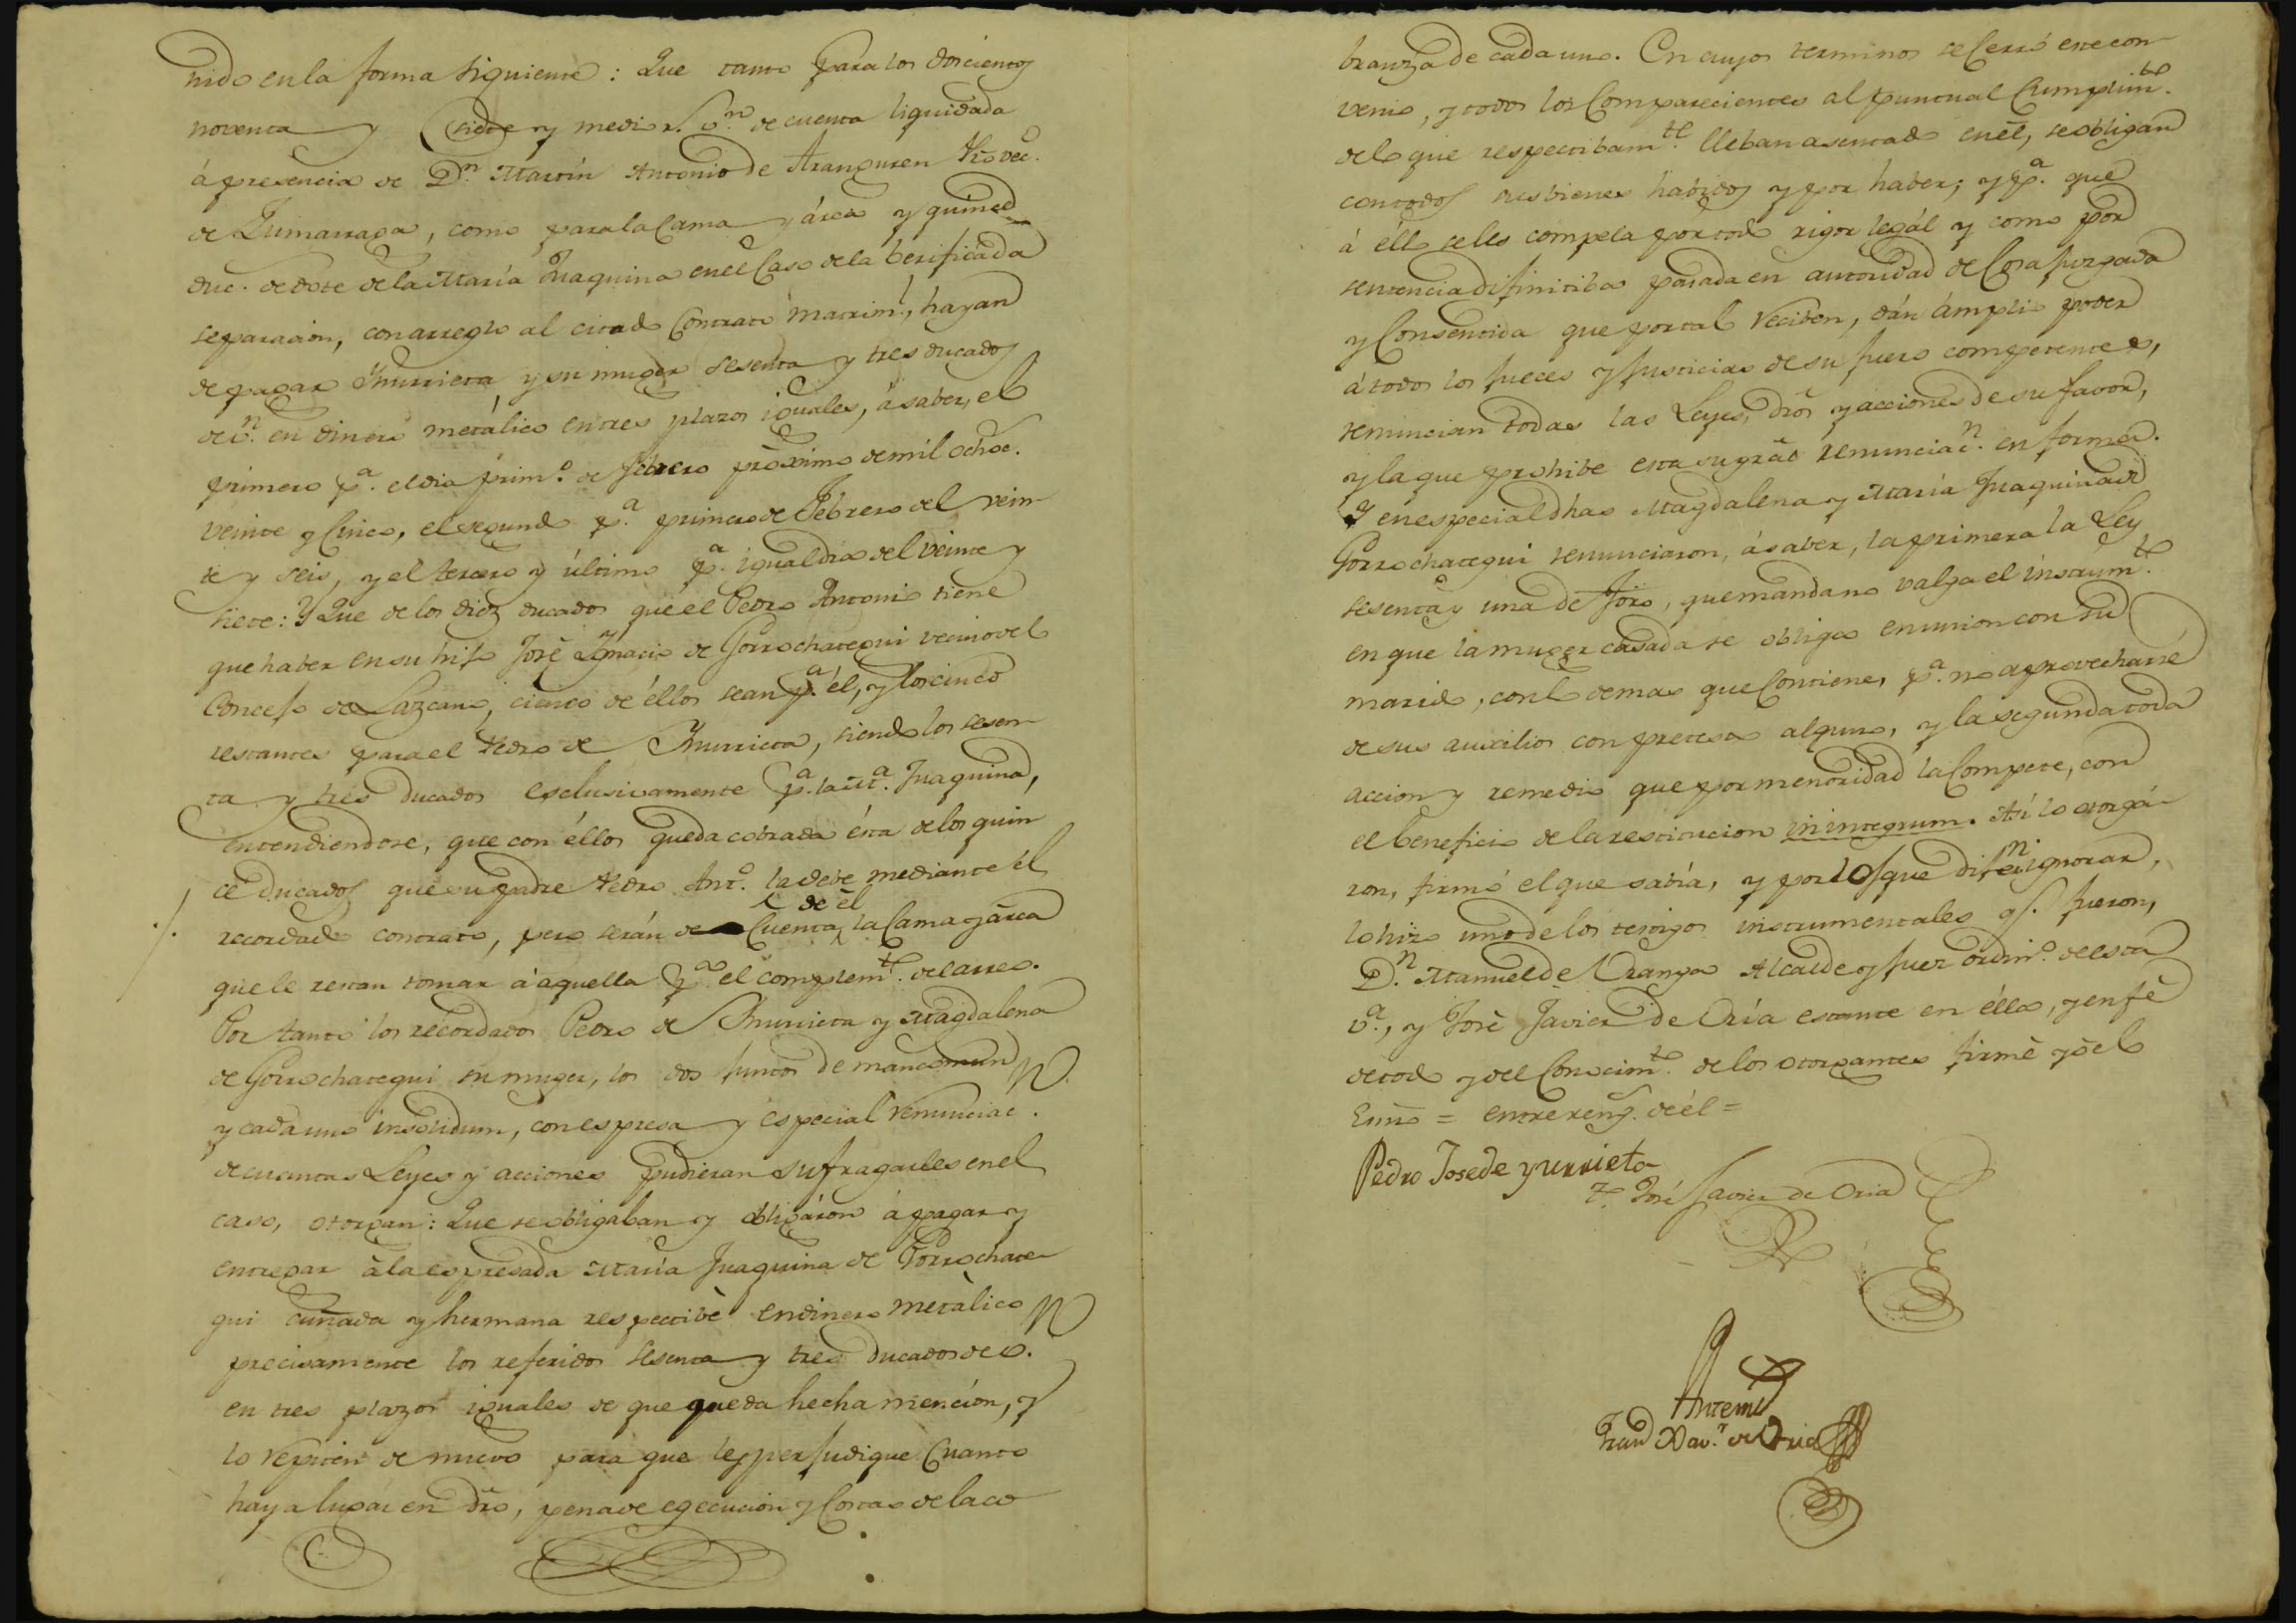 nido en la forma siguiente: Que tanto para los doscientos
noventa y siete y medio r.s v.n de cuenta liquidada
á presencia de D.n Martín Antonio de Aranguren Ñro vec.º
de Zumarraga, como para la Cama y árca y quince
duc.s de dote de la María Juaquina en el Caso de la berificada
separacion, con arreglo al citado Contrato matrim.l, hayan
de pagar Ynurrieta y su muger sesenta y tres ducados
de v.n en dinero metálico en tres plazos iguales, á saber, el
primero p.a el dia prim.º de febrero próximo de mil ochoc.
veinte y Cinco, el segundo p.a primero de Febrero del vein
te y seis, y el tercero y último p.a igual dia del veinte y
siete: Y Que de los diez ducados que el Pedro Antonio tiene
que haber en su hijo José Ygnacio de Gorrochategui vecino del
Concejo de Lazcano, cinco de éllos sean p.a él, y los cinco
restantes para el Pedro de Ynurrieta, siendo los sesen
ta y tres ducados esclusivamente p.a la M.a Juaquina,
entendiendose, que con éllos queda cobrada ésta de los quin
ce ducados que su padre Pedro Ant.º la debe mediante él
recordado contrato, pero serán de Cuenta de él la Cama y árca
que le restan tomar á aquella p.a el complem.to del arreo.
Por tanto los recordados Pedro de Ynurrieta y Magdalena
de Gorrochategui su muger, los dos juntos de mancomun
y cada uno insolidum, con espresa y especial renunciac.n
de cuantas Leyes y acciones pudieran sufragarles en el
caso, otorgan: Que se obligaban y obligáron á pagar y
entregar á la espresada María Juaquina de Gorrochate
gui cuñada y hermana respectibè en dinero metàlico
precisamente los referidos sesenta y tres ducados de v.n
en tres plazos iguales de que queda hecha mención, y
lo repiten de nuevo para que les perjudique Cuanto
haya lugár en dro, pena de egecucion y Costas de la co
branza de cada uno. En cuyos terminos se Cerró este con
venio, y todos los Comparecientes al puntual Cumplim.to
de lo que respectibam.te lleban asentado en él, se obligan
con todos sus bienes habidos y por haber; y p.a que
á éllo se les compela por todo rigor legál y como por
sentencia difinitiba pasada en autoridad de Cosa juzgada
y Consentida que por tal reciben, dán ámplio poder
á todos los jueces y justicias de su fuero competentes,
renuncian todas las Leyes, dros y acciones de su favor,
y la que prohibe esta su grãl renunciac.n en forma.
Y en especial dhas Magdalena y María Juaquina de
Gorrochategui renunciaron, á saber, la primera la Ley
sesenta y una de Toro, que manda no valga el instrum.to
en que la muger casada se obliga en union con su
marido, con lo demas que Contiene, p.a no aprovecharse
de sus auxilios con pretesto alguno, y la segunda toda
accion y remedio que por menoridad la Compete, con
el beneficio de la restitucion in integrum. Así lo otorgá
ron, firmó el que sabía, y por los que dijer.n ignorar,
lo hizo uno de los testigos instrumentales q.e fueron,
D.n Manuel de Oranga Alcalde y juez ordin.º de esta
v.a, y José Javier de Oría estante en élla, y en fé
de todo y del Conocim.to de los otorgantes firmé yo el
Essno = entre reng.s de él =
Pedro Jose de ynurrieta
T.º José Javier de Oria
Antemi
Fran.co Xav.r de Oria